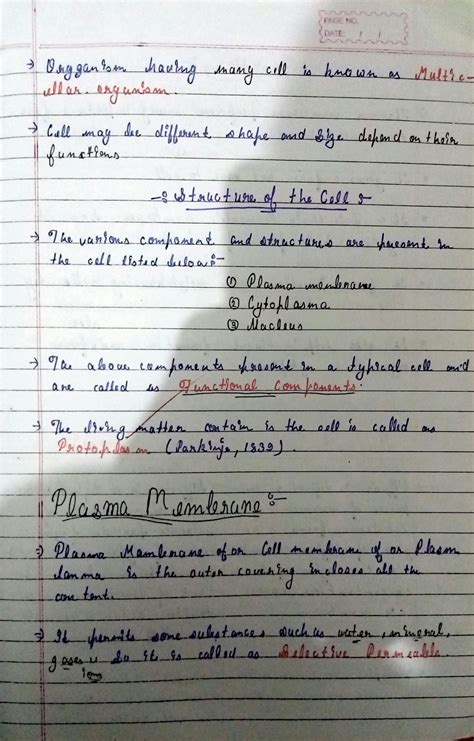 PAGE NO.
DATE: / /
→ Orgganism having many cell is known as Multic-
ellar. organism.
→ Cell may be different shape and size depend on their
functions
-: Structure of the Cell :-
→ The various component and structures are present in
the cell listed below:-
① Plasma membrane
② Cytoplasma
③ Nucleus
→ The above components present in a typical cell and
are called as Functional Components.
→ The living matter contain is the cell is called as
Protoplasm (Parkinje, 1839).
Plasma Membrane :-
→ Plasma Mambrane of or Cell membrane of or Plasm
lamma is the outer covering incloses all the
content.
→ It permits some substances such as water, mineral,
gases So it is called as Selective Permeable
ions